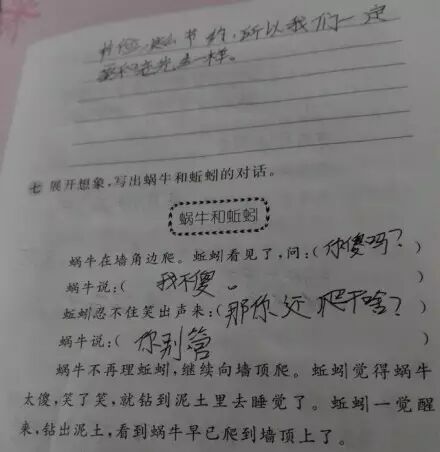 节约,所以我们一定
一样。
七 展开想象,写出蜗牛和蚯蚓的对话。
蜗牛和蚯蚓
蜗牛在墙角边爬。蚯蚓看见了,问:(你傻吗?)
蜗牛说:(我不傻。)
蚯蚓忍不住笑出声来:(那你还爬干啥?)
蜗牛说:(你别管)
蜗牛不再理蚯蚓,继续向墙顶爬。蚯蚓觉得蜗牛
太傻,笑了笑,就钻到泥土里去睡觉了。蚯蚓一觉醒
来,钻出泥土,看到蜗牛早已爬到墙顶上了。